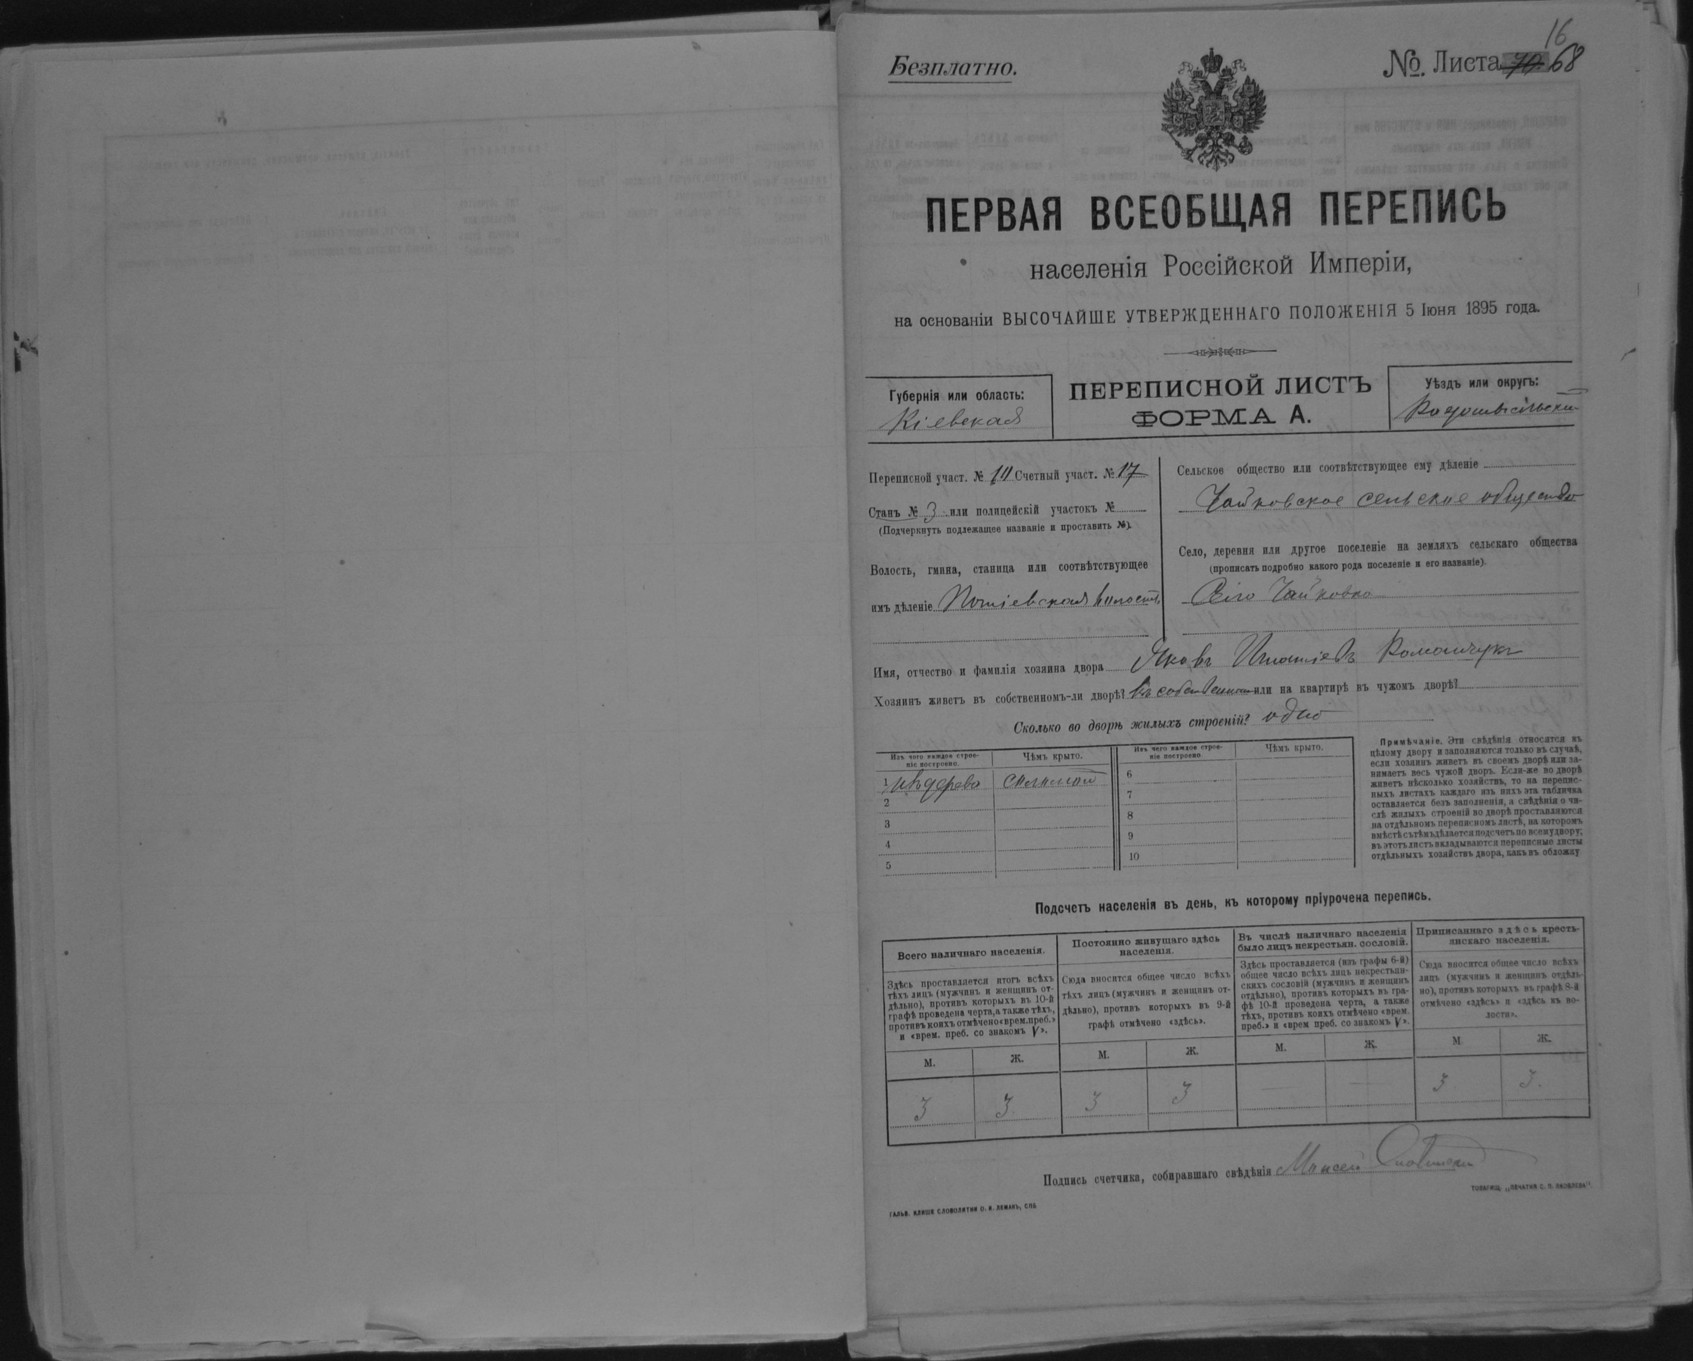 16
Безплатно.
№ Листа 68
ПЕРВАЯ ВСЕОБЩАЯ ПЕРЕПИСЬ
населенія Россійской Имперіи,
на основаніи ВЫСОЧАЙШЕ УТВЕРЖДЕННАГО ПОЛОЖЕНІЯ 5 Іюня 1895 года.
Губернія или область:
Кіевская
ПЕРЕПИСНОЙ ЛИСТЪ
ФОРМА А.
Уѣздъ или округъ:
Радомысльскій
Переписной участ. № Счетный участ. № 17
Станъ № 3 или полицейскій участокъ №
(Подчеркнуть подлежащее названіе и проставить №).
Волость, гмина, станица или соотвѣтствующее
имъ дѣленіе Потіевская волость
Сельское общество или соотвѣтствующее ему дѣленіе
Чайковское сельское общество
Село, деревня или другое поселеніе на земляхъ сельскаго общества
(прописать подробно какого рода поселеніе и его названіе).
Село Чайковка
Имя, отчество и фамилія хозяина двора Яковъ Игнатіевъ Романчукъ
Хозяинъ живетъ въ собственномъ-ли дворѣ? въ собственномъ или на квартирѣ въ чужомъ дворѣ?
Сколько во дворѣ жилыхъ строеній? одно
Изъ чего каждое строеніе построено.
Чѣмъ крыто.
Изъ чего каждое строеніе построено.
Чѣмъ крыто.
1 изъ дерева соломой
2
3
4
5
6
7
8
9
10
Примѣчаніе. Эти свѣдѣнія относятся къ
цѣлому двору и заполняются только въ случаѣ,
если хозяинъ живетъ въ своемъ дворѣ или за-
нимаетъ весь чужой дворъ. Если-же во дворѣ
живетъ нѣсколько хозяйствъ, то на перепис-
ныхъ листахъ каждаго изъ нихъ эта табличка
оставляется безъ заполненія, а свѣдѣнія о чи-
слѣ жилыхъ строеній во дворѣ проставляются
на отдѣльномъ переписномъ листѣ, на которомъ
вмѣстѣ съ тѣмъ дѣлается подсчетъ по всему двору;
въ этотъ листъ вкладываются переписные листы
отдѣльныхъ хозяйствъ двора, какъ въ обложку
Подсчетъ населенія въ день, къ которому пріурочена перепись.
Всего наличнаго населенія.
Здѣсь проставляется итогъ всѣхъ
тѣхъ лицъ (мужчинъ и женщинъ от-
дѣльно), противъ которыхъ въ 10-й
графѣ проведена черта, а также тѣхъ,
противъ коихъ отмѣчено «врем. преб.»
и «врем. преб. со знакомъ V».
Постоянно живущаго здѣсь
населенія.
Сюда вносится общее число всѣхъ
тѣхъ лицъ (мужчинъ и женщинъ от-
дѣльно), противъ которыхъ въ 9-й
графѣ отмѣчено «здѣсь».
Въ числѣ наличнаго населенія
было лицъ некрестьян. сословій.
Здѣсь проставляется (изъ графы 6-й)
общее число всѣхъ лицъ некрестьян-
скихъ сословій (мужчинъ и женщинъ
отдѣльно), противъ которыхъ въ гра-
фѣ 10-й проведена черта, а также
тѣхъ, противъ коихъ отмѣчено «врем.
преб.» и «врем преб. со знакомъ V».
Приписаннаго здѣсь кресть-
янскаго населенія.
Сюда вносится общее число всѣхъ
лицъ (мужчинъ и женщинъ отдѣль-
но), противъ которыхъ въ графѣ 8-й
отмѣчено «здѣсь» и «здѣсь въ во-
лости».
М. Ж. М. Ж. М. Ж. М Ж.
3 3 3 3 — — 3 3.
Подпись счетчика, собиравшаго свѣдѣнія Моисей
ГАЛЬВ. КЛИШЕ СЛОВОЛИТНИ О. И. ЛЕМАНЪ, СПБ
ТОВАРИЩ. „ПЕЧАТНЯ С. П. ЯКОВЛЕВА".